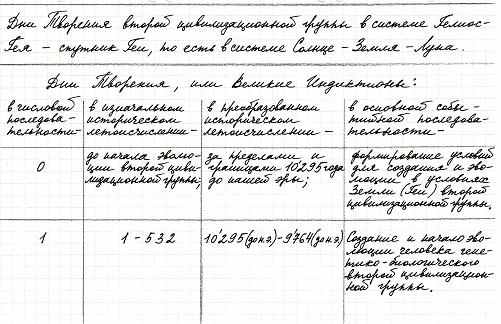 Дни Творения второй цивилизационной группы в системе Гелиос-
Гея – спутник Геи, то есть в системе Солнце – Земля – Луна.
Дни Творения, или Великие Индиктионы:
в числовой
последова-
тельности –
в изначальном
историческом
летоисчислении –
в преобразованном
историческом
летоисчислении –
в основной собы-
тийной последова-
тельности –
0
до начала эволю-
ции второй циви-
лизационной группы;
за пределами и
границами 10'295 года
до нашей эры;
формирование условий
для создания и эво-
люции в условиях
Земли (Геи) второй
цивилизационной группы.
1
1 – 532
10'295 (до н э) – 9'764 (до н э)
Создание и начало эво-
люции человека гене-
тико-биологического
второй цивилизацион-
ной группы.